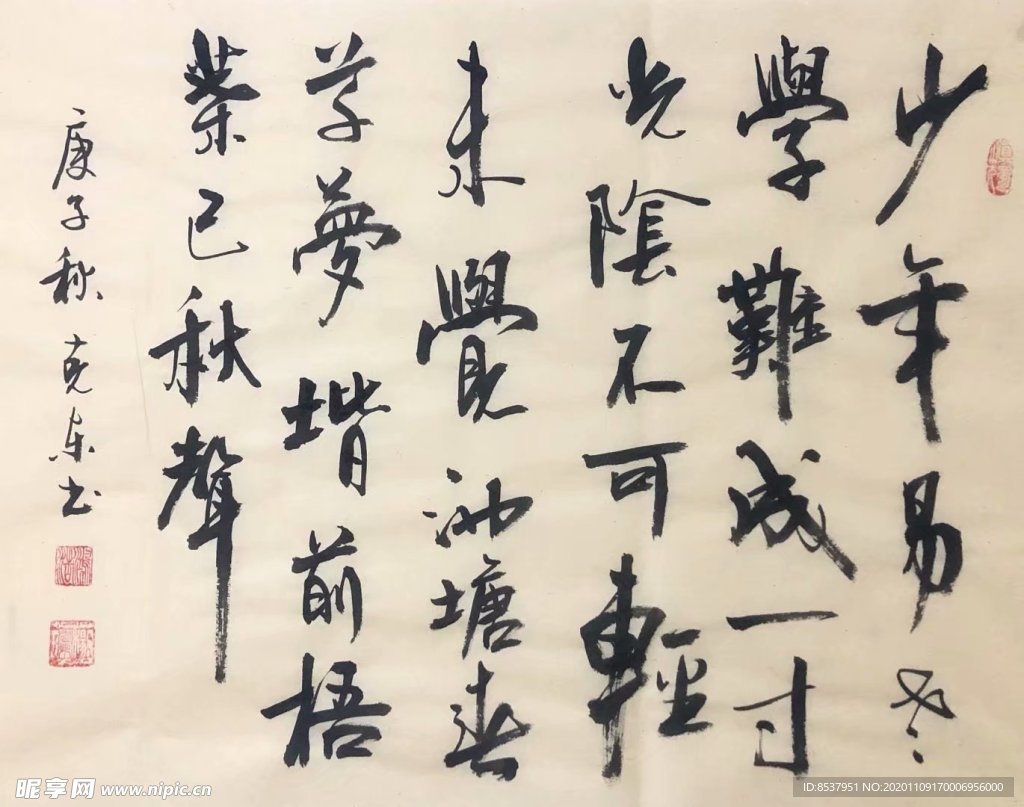 少年易老
學難成一寸
光陰不可輕
未覺池塘春
草夢堦前梧
葉已秋聲
庚子秋 克书
昵享网 www.nipic.cn
ID:8537951 NO:20201109170006956000